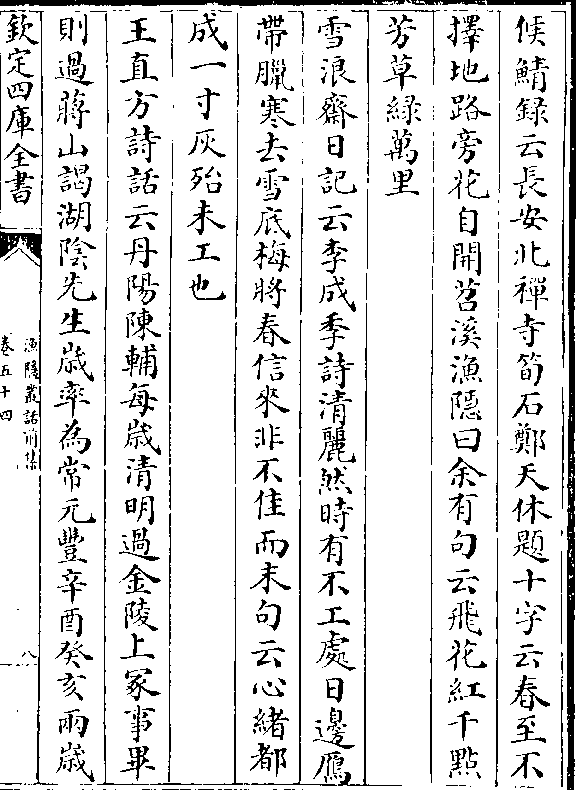 侯鯖録云長安北禪寺筍石鄭天休題十字云春至不
擇地路旁花自開苕溪漁隱曰余有句云飛花紅千點
芳草綠萬里
雪浪齋日記云李成季詩清麗然時有不工處日邊鴈
帶臘寒去雪底梅將春信來非不佳而末句云心緒都
成一寸灰殆未工也
王直方詩話云丹陽陳輔每歲清明過金陵上冢事畢
則過蔣山謁湖陰先生歲率為常元豐辛酉癸亥兩歲
欽定四庫全書
漁隱叢話前集
卷五十四
八